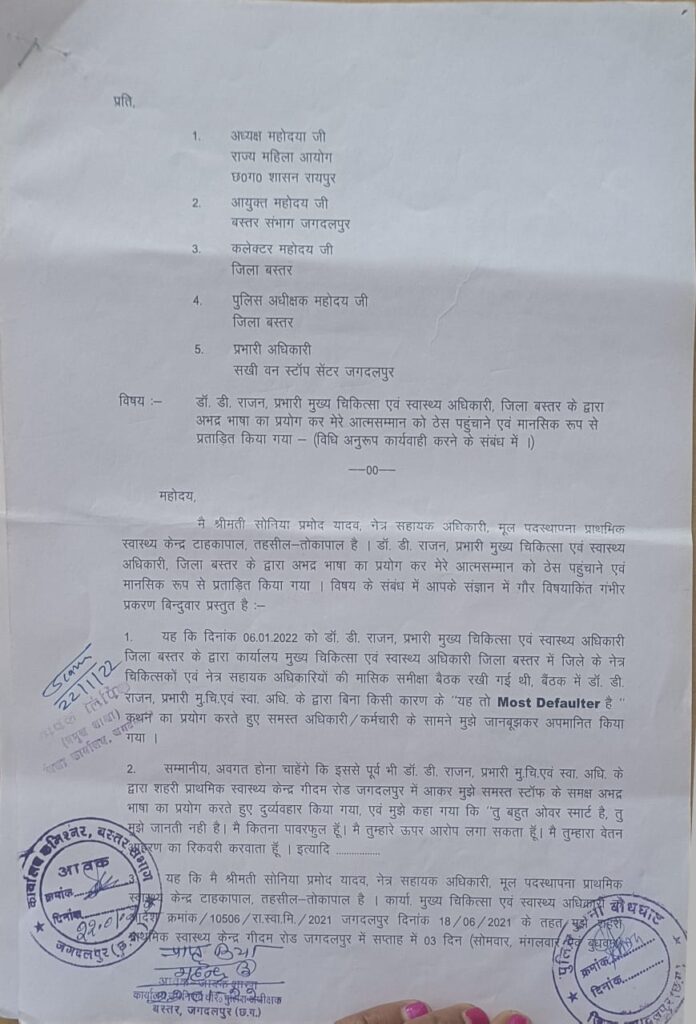 प्रति,
1. अध्यक्ष महोदया जी
राज्य महिला आयोग
छ0ग0 शासन रायपुर
2. आयुक्त महोदय जी
बस्तर संभाग जगदलपुर
3. कलेक्टर महोदय जी
जिला बस्तर
4. पुलिस अधीक्षक महोदय जी
जिला बस्तर
5. प्रभारी अधिकारी
सखी वन स्टॉप सेंटर जगदलपुर
विषय :– डॉ. डी. राजन, प्रभारी मुख्य चिकित्सा एवं स्वास्थ्य अधिकारी, जिला बस्तर के द्वारा
अभद्र भाषा का प्रयोग कर मेरे आत्मसम्मान को ठेस पहुंचाने एवं मानसिक रूप से
प्रताड़ित किया गया – (विधि अनुरूप कार्यवाही करने के संबंध में ।)
—00—
महोदय,
मै श्रीमती सोनिया प्रमोद यादव, नेत्र सहायक अधिकारी, मूल पदस्थापना प्राथमिक
स्वास्थ्य केन्द्र टाहकापाल, तहसील–तोकापाल है । डॉ. डी. राजन, प्रभारी मुख्य चिकित्सा एवं स्वास्थ्य
अधिकारी, जिला बस्तर के द्वारा अभद्र भाषा का प्रयोग कर मेरे आत्मसम्मान को ठेस पहुंचाने एवं
मानसिक रूप से प्रताड़ित किया गया । विषय के संबंध में आपके संज्ञान में गौर विषयाकिंत गंभीर
प्रकरण बिन्दुवार प्रस्तुत है :–
1. यह कि दिनांक 06.01.2022 को डॉ. डी. राजन, प्रभारी मुख्य चिकित्सा एवं स्वास्थ्य अधिकारी
जिला बस्तर के द्वारा कार्यालय मुख्य चिकित्सा एवं स्वास्थ्य अधिकारी जिला बस्तर में जिले के नेत्र
चिकित्सकों एवं नेत्र सहायक अधिकारियों की मासिक समीक्षा बैठक रखी गई थी, बैठक में डॉ. डी.
राजन, प्रभारी मु.चि.एवं स्वा. अधि. के द्वारा बिना किसी कारण के "यह तो Most Defaulter है "
कथन का प्रयोग करते हुए समस्त अधिकारी/कर्मचारी के सामने मुझे जानबूझकर अपमानित किया
गया ।
Scan
22/1/22
2. सम्मानीय, अवगत होना चाहेंगे कि इससे पूर्व भी डॉ. डी. राजन, प्रभारी मु.चि.एवं स्वा. अधि. के
द्वारा शहरी प्राथमिक स्वास्थ्य केन्द्र गीदम रोड जगदलपुर में आकर मुझे समस्त स्टॉफ के समक्ष अभद्र
भाषा का प्रयोग करते हुए दुर्व्यवहार किया गया, एवं मुझे कहा गया कि "तु बहुत ओवर स्मार्ट है, तु
मुझे जानती नही है। मै कितना पावरफुल हूँ। मै तुम्हारे ऊपर आरोप लगा सकता हूँ। मै तुम्हारा वेतन
का रिकवरी करवाता हूँ । इत्यादि ................
3. यह कि मै श्रीमती सोनिया प्रमोद यादव, नेत्र सहायक अधिकारी, मूल पदस्थापना प्राथमिक
स्वास्थ्य केन्द्र टाहकापाल, तहसील–तोकापाल है । कार्या. मुख्य चिकित्सा एवं स्वास्थ्य अधिकारी
आदेश क्रमांक/10506/रा.स्वा.मि./2021 जगदलपुर दिनांक 18/06/2021 के तहत मुझे शहरी
प्राथमिक स्वास्थ्य केन्द्र गीदम रोड जगदलपुर में सप्ताह में 03 दिन (सोमवार, मंगलवार एवं बुधवार)
कार्यालय कमिश्नर, बस्तर संभाग
आवक
क्रमांक
दिनांक
जगदलपुर (छ.ग.)
बस्तर, जगदलपुर (छ.ग.)
बोधघाट
क्रमांक
दिनांक